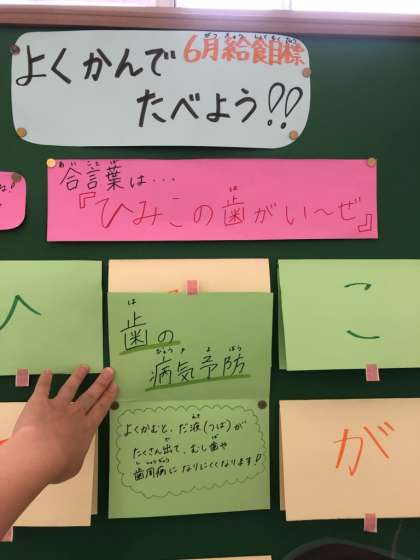 6月給食目標
よくかんで
たべよう!!
合言葉は…
『ひみこの歯がい〜ぜ』
こ
歯の
病気予防
よくかむと、だ液(つば)が
たくさん出て、むし歯や
歯周病になりにくくなります!
が